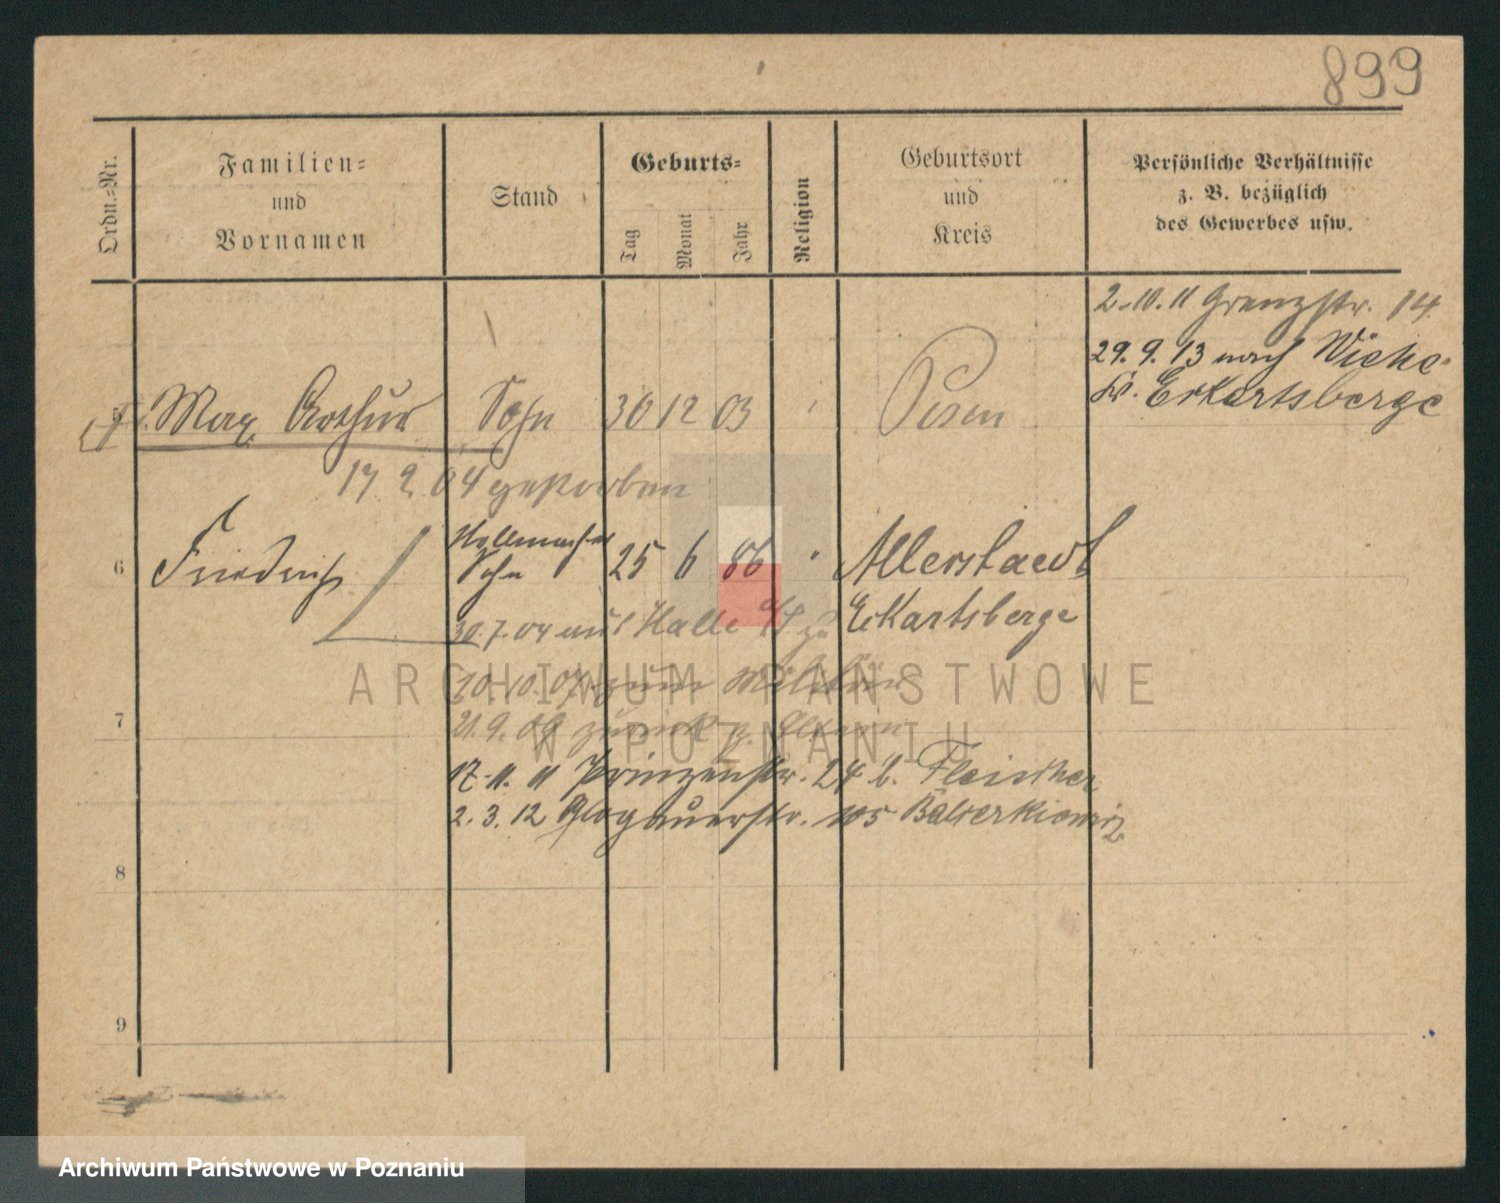 899
Ordn.-Nr.
Familien-
und
Vornamen
Stand
Geburts-
Tag
Monat
Jahr
Religion
Geburtsort
und
Kreis
Persönliche Verhältnisse
z. B. bezüglich
des Gewerbes usw.
2.10.11 Grenzstr. 14
29.9.13 nach Wiehe
Kr. Eckartsberge
5 Max Arthur Sohn 30 12 03 Posen
17 9 04 gestorben
6 Friedrich Sohn 25 6 86 Allerstaedt
30.7.04 aus Halle a/S. Eckartsberge
10.10.07 zum Militär
7
21.9.09 zurück z. Eltern
17.11.11 Prinzenstr. 24 b. Fleischer
2.3.12 Glogauerstr. 105
8
9
ARCHIWUM PAŃSTWOWE
W POZNANIU
Archiwum Państwowe w Poznaniu